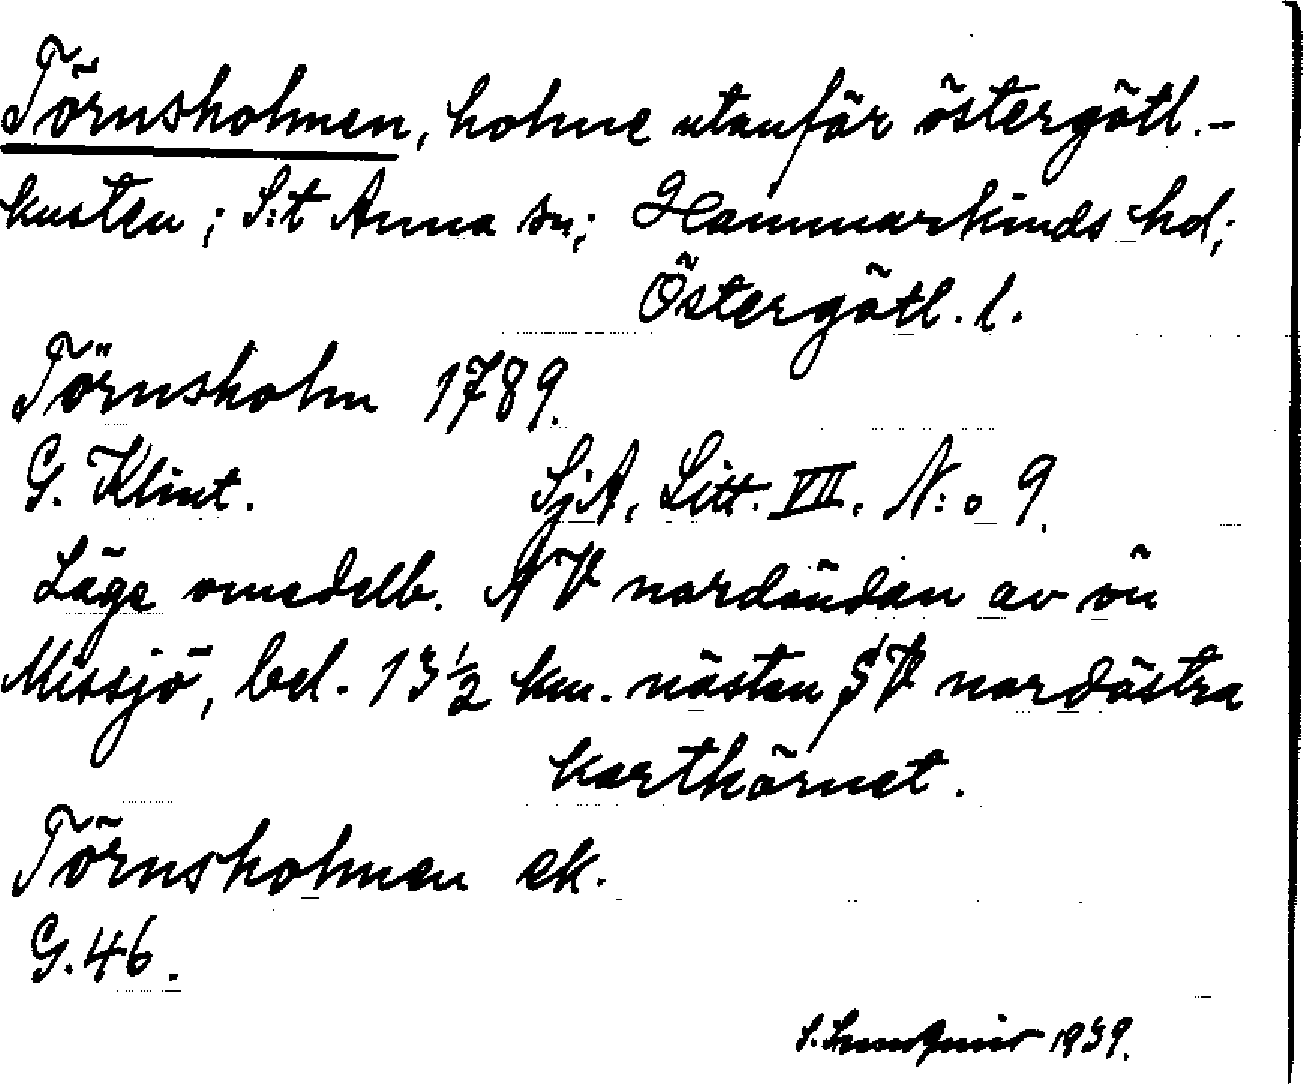 Törnsholmen, holme utanför östergötl.-
kusten; S:t Anna sn; Hammarkinds hd;
Östergötl. l.
Törnsholm 1789.
G. Klint. SjA, Litt. VII. N:o 9.
Läge omedelb. NV nordändan av ön
Missjö, bel. 13 1/2 km. nästan SV nordöstra
karthörnet.
Törnsholmen ek.
G. 46.
S. Lundqvist 1939.